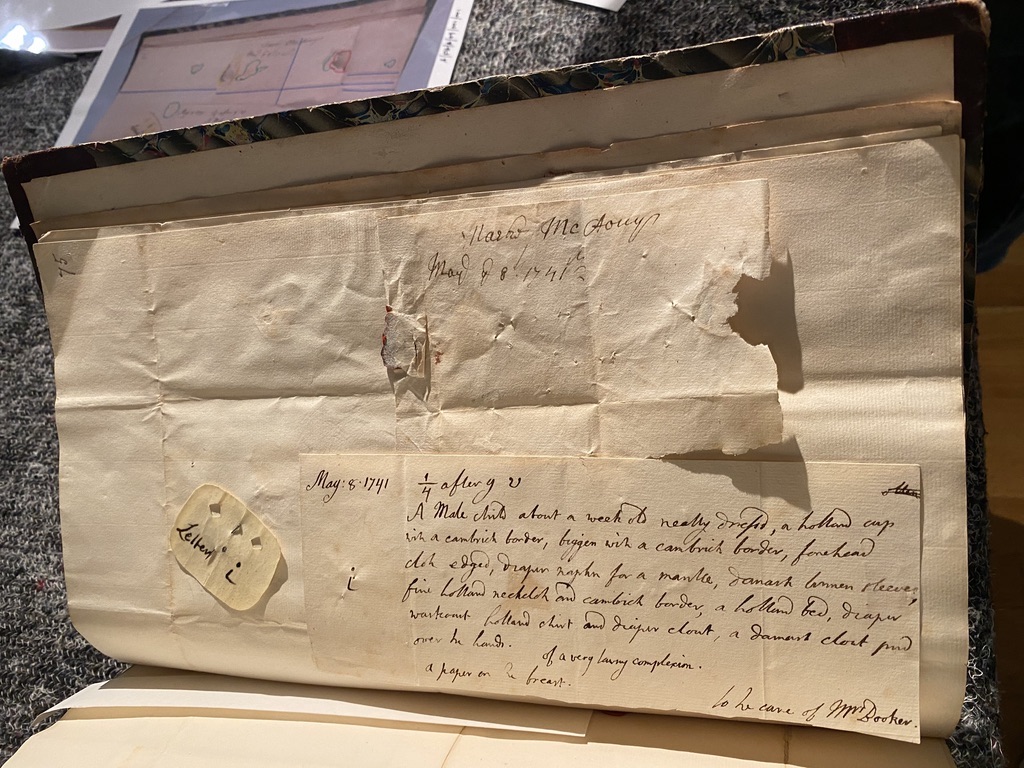 75
May 8 1741
Letter i
May: 8. 1741
¼ after 9
A Male child about a week old neatly dressd, a holland cup
with a cambrick border, biggen with a cambrick border, forehead
cloth edged, diaper napkn for a mantle, damask linnen sleeves,
fine holland neckcloth and cambrick border, a holland bed, diaper
wastcoat holland shirt and diaper clout, a damask clout pind
over the hands. of a very tawny complexion.
a paper on the breast.
i
to the care of Mrs Booker.